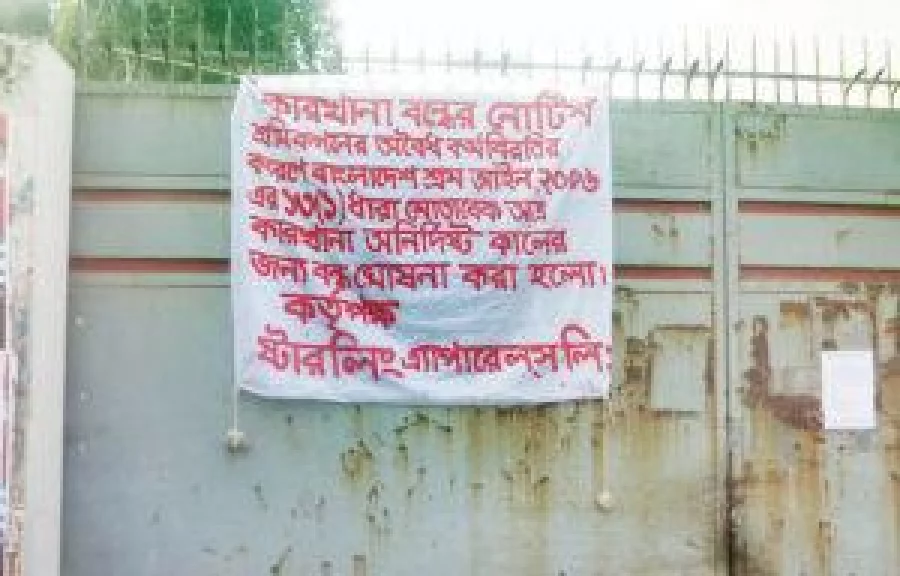 কারখানা বন্ধের নোটিশ
শ্রমিকগনের অবৈধ কর্মবিরতির
কারণে বাংলাদেশ শ্রম আইন ২০০৬
এর ১৩(১) ধারা মোতাবেক অত্র
কারখানা অনির্দিষ্ট কালের
জন্য বন্ধ ঘোষনা করা হলো।
কর্তৃপক্ষ
স্টারলিং এ্যাপারেলস লিঃ